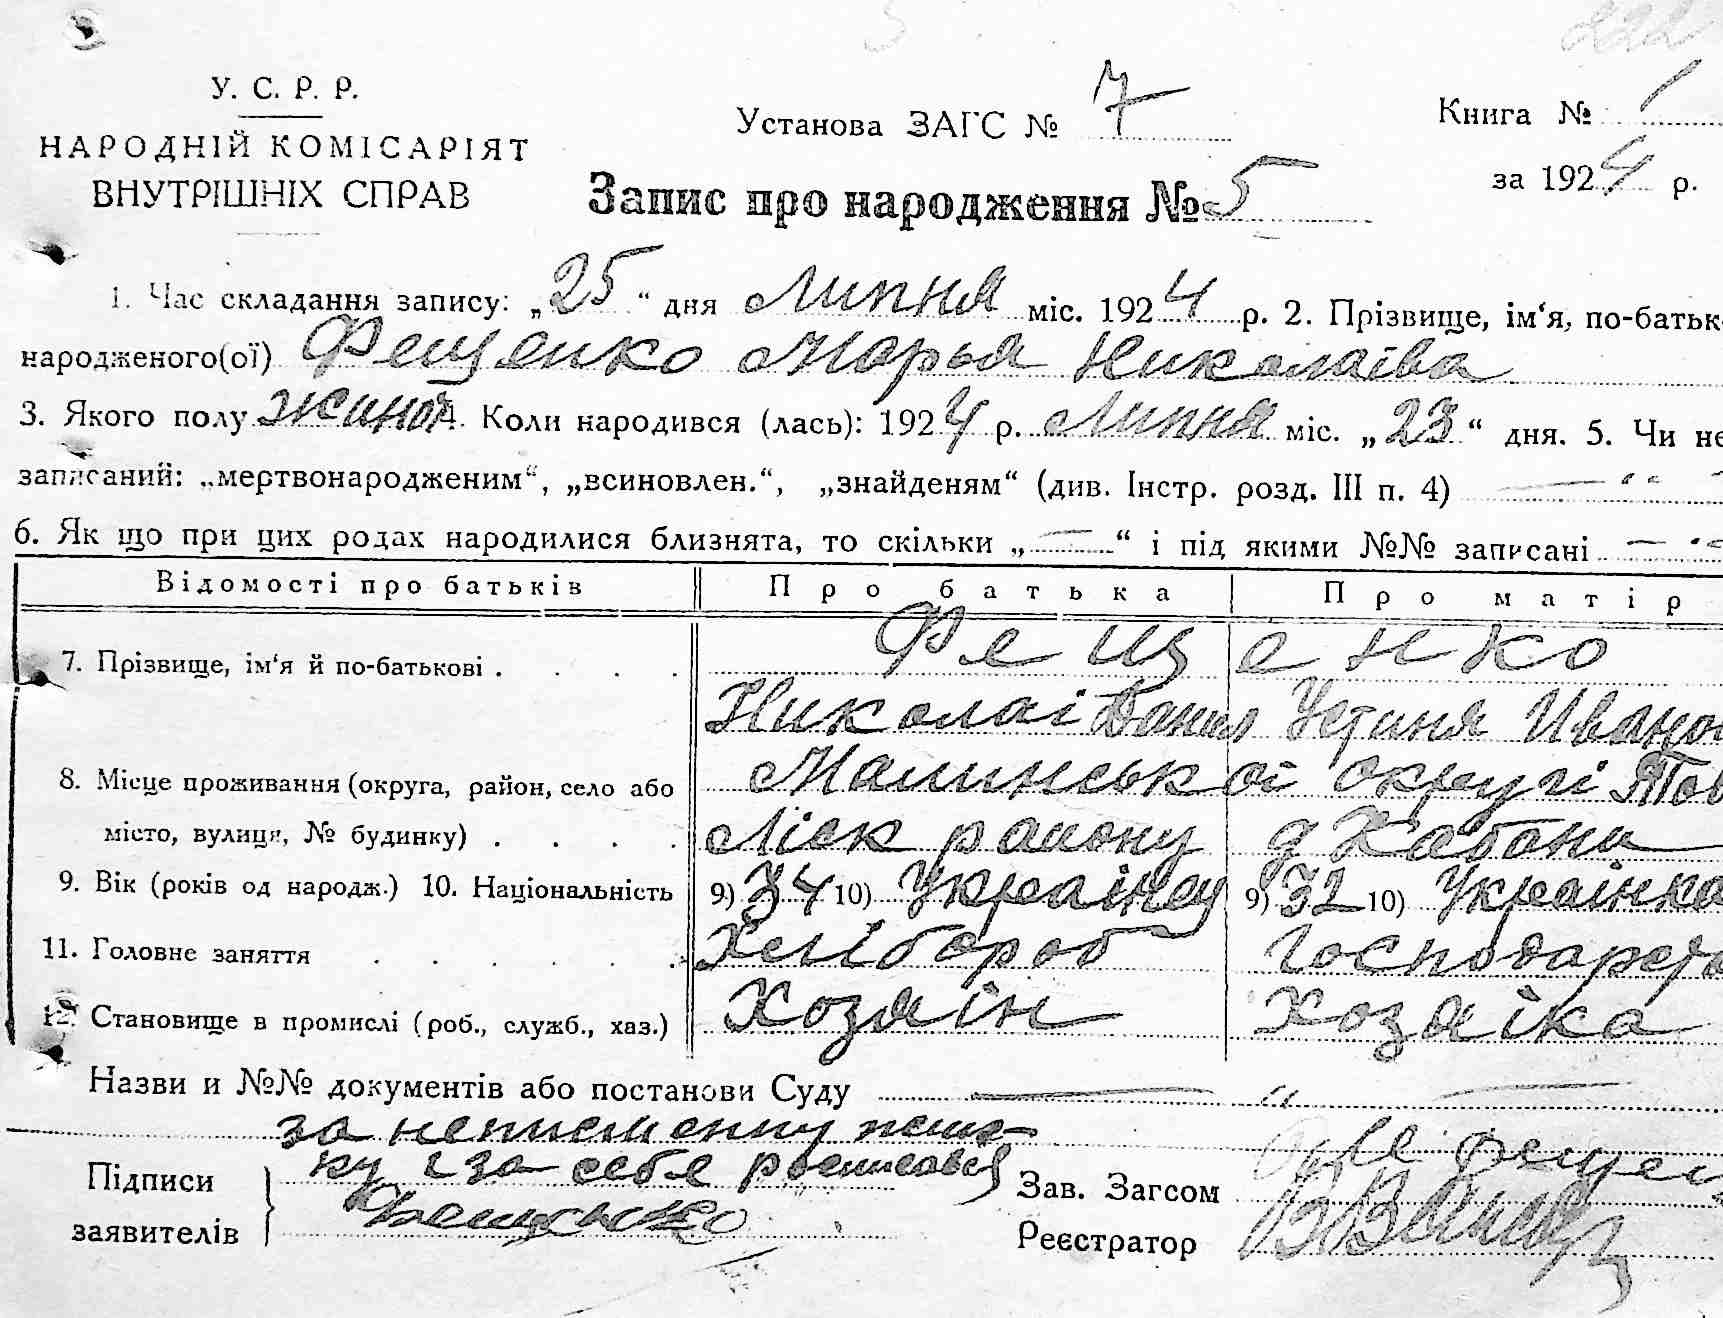 У. С. Р. Р.
НАРОДНІЙ КОМІСАРІЯТ
ВНУТРІШНІХ СПРАВ
Установа ЗАГС № 7
Книга № 1
за 1924 р.
Запис про народження № 5
1. Час складання запису: „25“ дня Липня міс. 1924 р. 2. Прізвище, ім‘я, по-батьк
народженого(ої) Фещенко Марья Николаіва
3. Якого полу жиноч 4. Коли народився (лась): 1924 р. Липня міс. „23“ дня. 5. Чи не
записаний: „мертвонародженим“, „всиновлен.“, „знайденям“ (див. Інстр. розд. III п. 4) — “ —
6. Як що при цих родах народилися близнята, то скільки „—“ і під якими №№ записані —
Відомості про батьків Про батька Про матір
7. Прізвище, ім‘я й по-батькові . . . . Фещенко
Николаі Данил Устиня Ивано
8. Місце проживання (округа, район, село або Малинськоі округі
місто, вулиця, № будинку) . . . . району д Кабани
9. Вік (років од народж.) 10. Національність 9) 34 10) Украінец 9) 32 10) Украінка
11. Головне заняття . . . . . . Хлібороб Господарство
12. Становище в промислі (роб., служб., хаз.) Хозяін Хозяіка
Назви и №№ документів або постанови Суду — “ —
за неписменну
Підписи ку і за себе росписався
заявителів Фещенко
Зав. Загсом
Реєстратор